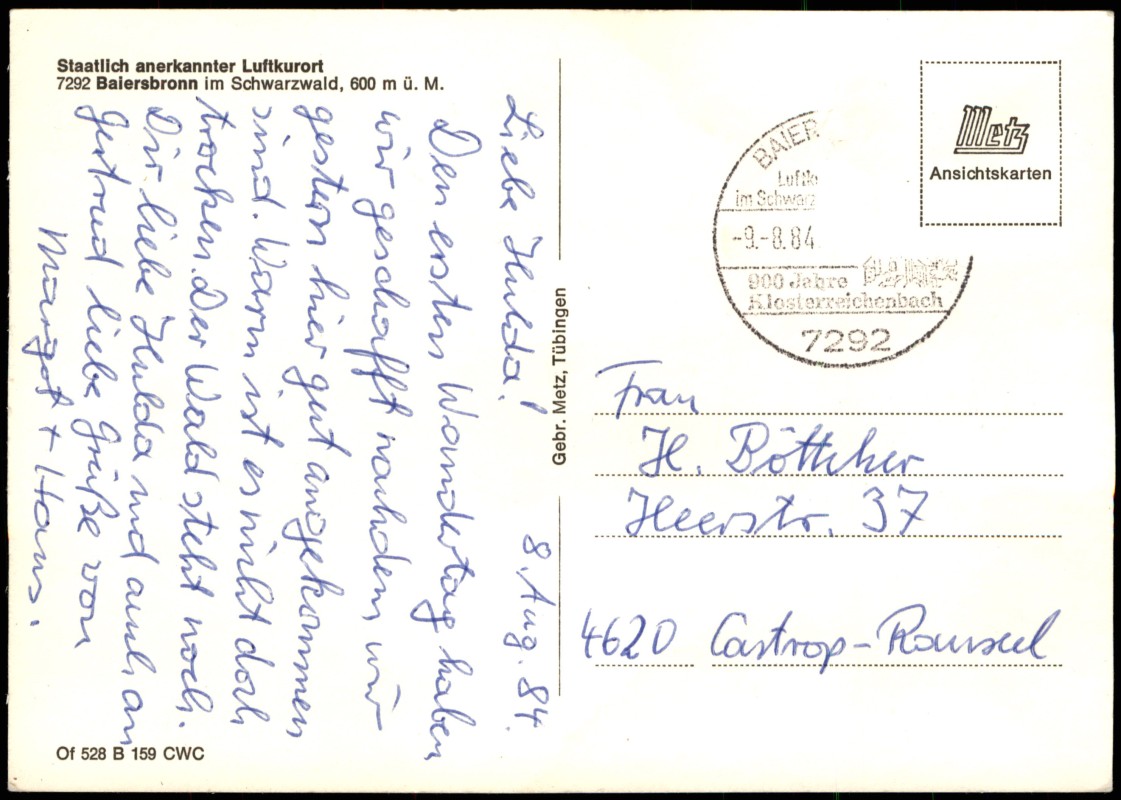 Staatlich anerkannter Luftkurort
7292 Baiersbronn im Schwarzwald, 600 m ü. M.
8. Aug. 84.
Liebe Hulda!
Den ersten Wandertag haben
wir geschafft nachdem wir
gestern hier gut angekommen
sind. Warm ist es nicht doch
trocken. Der Wald steht noch.
Dir liebe Hulda und auch an
Gertrud liebe Grüße von
Margot + Hans.
Of 528 B 159 CWC
Gebr. Metz, Tübingen
Metz
Ansichtskarten
BAIER
Luftk
im Schwarz
-9.-8.84
900 Jahre
Klosterreichenbach
7292
Frau
H. Böttcher
Heerstr. 37
4620 Castrop-Rauxel